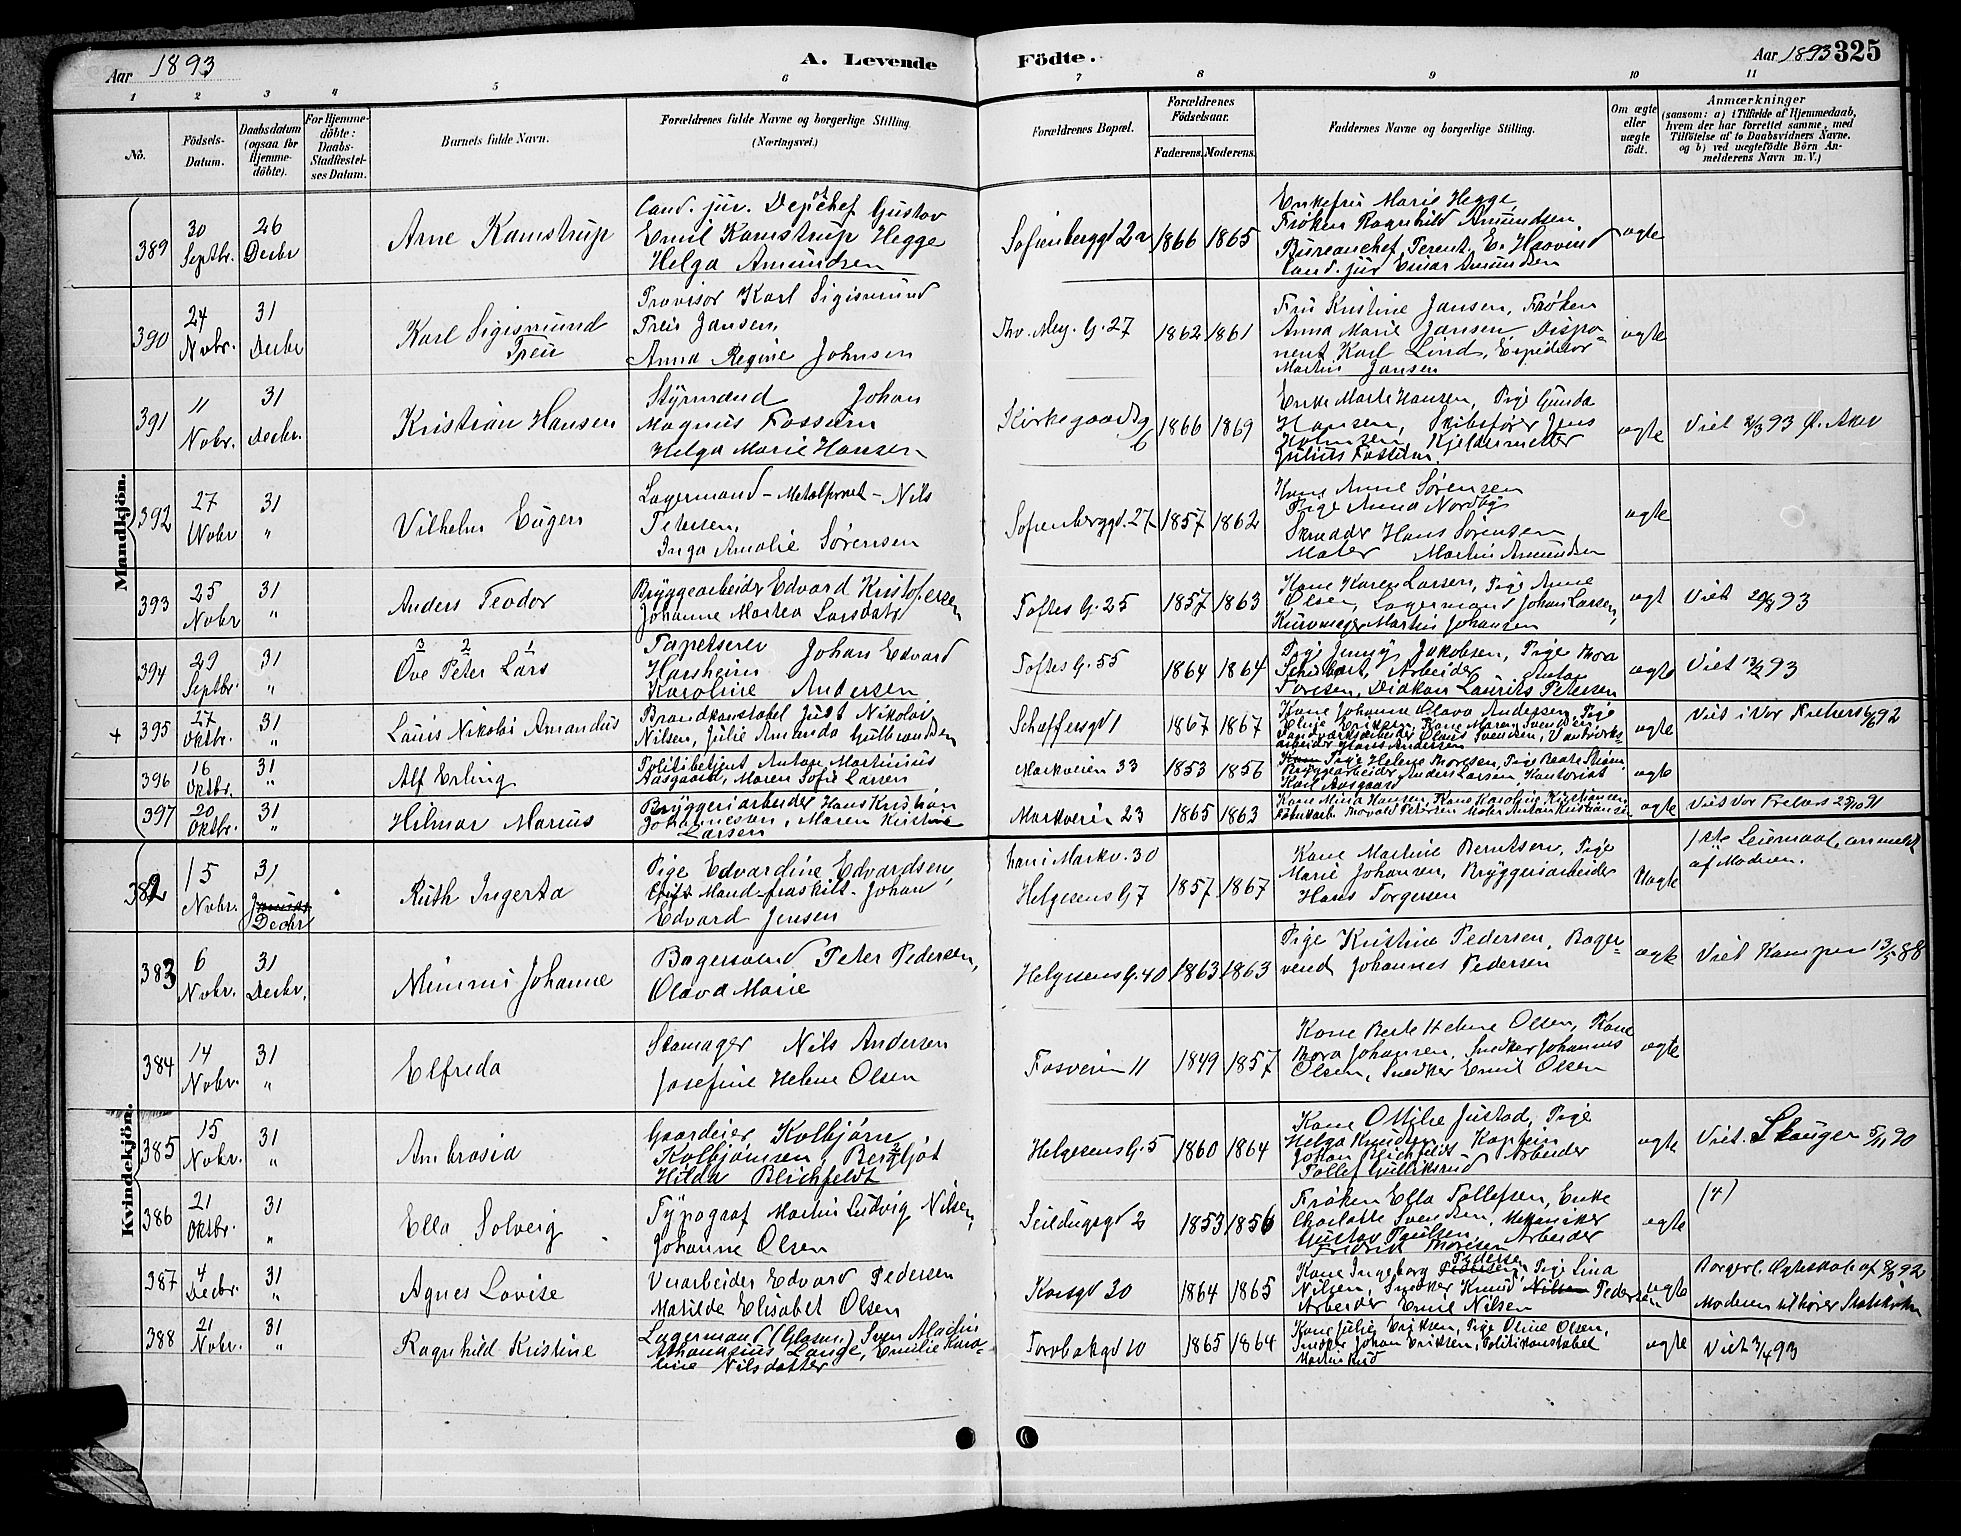 Aar 1893
A. Levende
Födte.
Aar 1893 325
1 2 3 4 5 6 7 8 9 10 11
No.
Födsels-Datum.
Daabsdatum (ogsaa for Hjemme-döbte).
For Hjemme-döbte: Daabs-Stadfæstelses Datum.
Barnets fulde Navn.
Forældrenes fulde Navne og borgerlige Stilling.
(Næringsvei.)
Forældrenes Bopæl.
Forældrenes Födselsaar.
Faderens. Moderens.
Faddernes Navne og borgerlige Stilling.
Om ægte eller uægte födt.
Anmærkninger
(saasom: a) i Tilfælde af Hjemmedaab, hvem der har forrettet samme, med Tilföielse af to Daabsvidners Navne, og b) ved uægtefödte Börn Anmelderens Navn m. V.)
Mandkjön.
389
30 Septbr.
26 Decbr
Arne Kamstrup
Cand. jur. Dep.chef Gustav
Emil Kamstrup Hegge
Helga Amundsen
Sofienberggd 2a
1866 1865
Enkefru Marie Hegge
Frøken Ragnhild Amundsen
Bureauchef Terent. E. Haavind
Cand. jur Einar Amundsen
ægte
390
24 Nobr.
31 Decbr
Karl Sigismund
Treu
Provisor Karl Sigismund
Treu Jansen,
Anna Regine Johnsen
Thv. Mey. G. 27
1862 1861
Fru Kristine Jansen, Frøken
Anna Marie Jansen Dispo
nent Karl Lind, Expeditør
Martin Jansen
ægte
391
11 Nobr.
31 Decbr.
Kristian Hansen
Styrmand Johan
Magnus Fossum
Helga Marie Hansen
Kirkegaardsg 6
1866 1869
Enke Marte Hansen, Pige Gunda
Hansen, Skibsfører Jens
Holmsen, Kjeldermester
Julius Fossum
ægte
Viet 2/3 93 Ø. Aker
392
27 Nobr
31 "
Vilhelm Eugen
Lagermand - Metalprvet - Nils
Petersen,
Inga Amalie Sørensen
Sofienberggd. 27
1857 1862
Kone Anne Sørensen
Pige Anna Nordby
Skrædder Hans Sørensen
Maler Martin Amundsen
ægte
393
25 Nobr
31 "
Anders Teodor
Bryggearbeider Edvard Kristofersen
Johanne Martea Larsdatr
Toftes G. 25
1857 1863
Kone Karen Larsen, Pige Anne
Olsen, Lagermand Johan Larsen,
Kurvmager Martin Johansen
ægt
Viet 20/8 93
394
29 Septbr.
31 "
3 2 1
Ove Peter Lars
Tapetserer Johan Edvard
Harsheim
Karoline Andersen
Toftes G. 55
1864 1864
Pige Jenny Jakobsen, Pige Thora
Schubart, Arbeider Anton
Toresen, Diakon Laurits Petersen
ægte
Viet 12/2 93
+ 395
27 Oktbr.
31 "
Lauis Nikolai Amandus
Brandkonstabel Just Nikolai
Nilsen, Julie Amanda Gulbrandsen
Schaffersgd 1
1867 1867
Kone Johanne Olava Andersen, Pige
Elise Eriksen, Kone Maren Svendsen,
Vandværksarbeider Olaus Svendsen, Vandværks-
arbeider Hans Andersen
ægte
Viet i Vor Frelsers 6/6 92
396
16 Oktbr.
31 "
Alf Erling
Politibetjent Anton Martinius
Aasgaard, Maren Sofie Larsen
Markveien 33
1853 1856
Pige Helene Thoresen, Pige Beate
Bryggearbeider Anders Larsen Kontorist
Karl Aasgaard
ægte
397
20 Oktbr.
31 "
Hilmar Marius
Bryggeriarbeider Hans Kristian
Johannesen, Maren Kristine
Larsen
Markveien 23
1865 1863
Kone Mina Hansen, Kone Karoline Kristiansen,
Fabrikarb. Thorvald Petersen Maler Anton Kristiansen
ægte
Viet Vor Frelsers 25/10 91
Kvindekjön.
382
15 Nobr.
31 Decbr
Ruth Ingerta
Pige Edvardine Edvardsen,
Gift Mand fraskilt Johan
Edvard Jensen
han i Markv. 30
Helgesens G 7
1857 1867
Kone Martine Berntsen, Pige
Marie Johansen, Bryggeriarbeider
Hans Torgersen
Uægte
1ste Leiermaal, anmeldt
af Moderen.
383
6 Nobr.
31 Decbr.
Mimmi Johanne
Bagersvend Peter Pedersen,
Olava Marie
Helgesens G. 40
1863 1863
Pige Kristine Pedersen, Bager-
svend Johannes Pedersen
ægte
Viet Kampen 13/5 88
384
14 Nobr.
31 "
Elfreda
Skomager Nils Andersen
Josefine Helene Olsen
Fosveien 11
1849 1857
Kone Berte Helene Olsen, Kone
Thora Johansen, Snedker Johannes
Olsen, Snedker Emil Olsen
ægte
385
15 Nobr.
31 "
Ambrosia
Gaardeier Kolbjørn
Kolbjørnsen, Bergljot
Hilda Blichfeldt
Helgesens G. 5
1860 1864
Kone Ottilie Justad, Pige
Helga Knudsen, Kaptein
Johan Blichfeldt Arbeider
Tollef Gulliksrud
ægte
Viet. Skauger 5/11 90
386
21 Oktbr.
31 "
Ella Solveig
Typograf Martin Ludvig Nilsen,
Johanne Olsen
Seildugsgd 2
1853 1856
Frøken Ella Tollefsen, Enke
Charlotte Svendsen, Mekaniker
Gustav Paulsen, Arbeider
Fredrik Thoresen
ægte
(4)
387
4 Decbr.
31 "
Agnes Lovise
Veiarbeider Edvard Pedersen
Matilde Elisabet Olsen
Korsgd 20
1864 1865
Pedersen
Kone Ingeborg Pedersen, Pige Lina
Nilsen, Snedker Knud Nilsen Pedersen
Arbeider Emil Nilsen
ægte
Borgerl. Ægteskab af 8/3 92
Moderen tilhører Statskirken
388
21 Nobr.
31 "
Ragnhild Kristine
Lagermand (Glasm.) Sven Aladin
Athanasius Lange, Emilie Karo-
line Nilsdatter
Torvbakgd 10
1865 1864
Kone Julie Eriksen, Pige Oline Olsen,
Snedker Johan Eriksen, Politikonstabel
Martin Rud
ægte
Viet 3/4 93